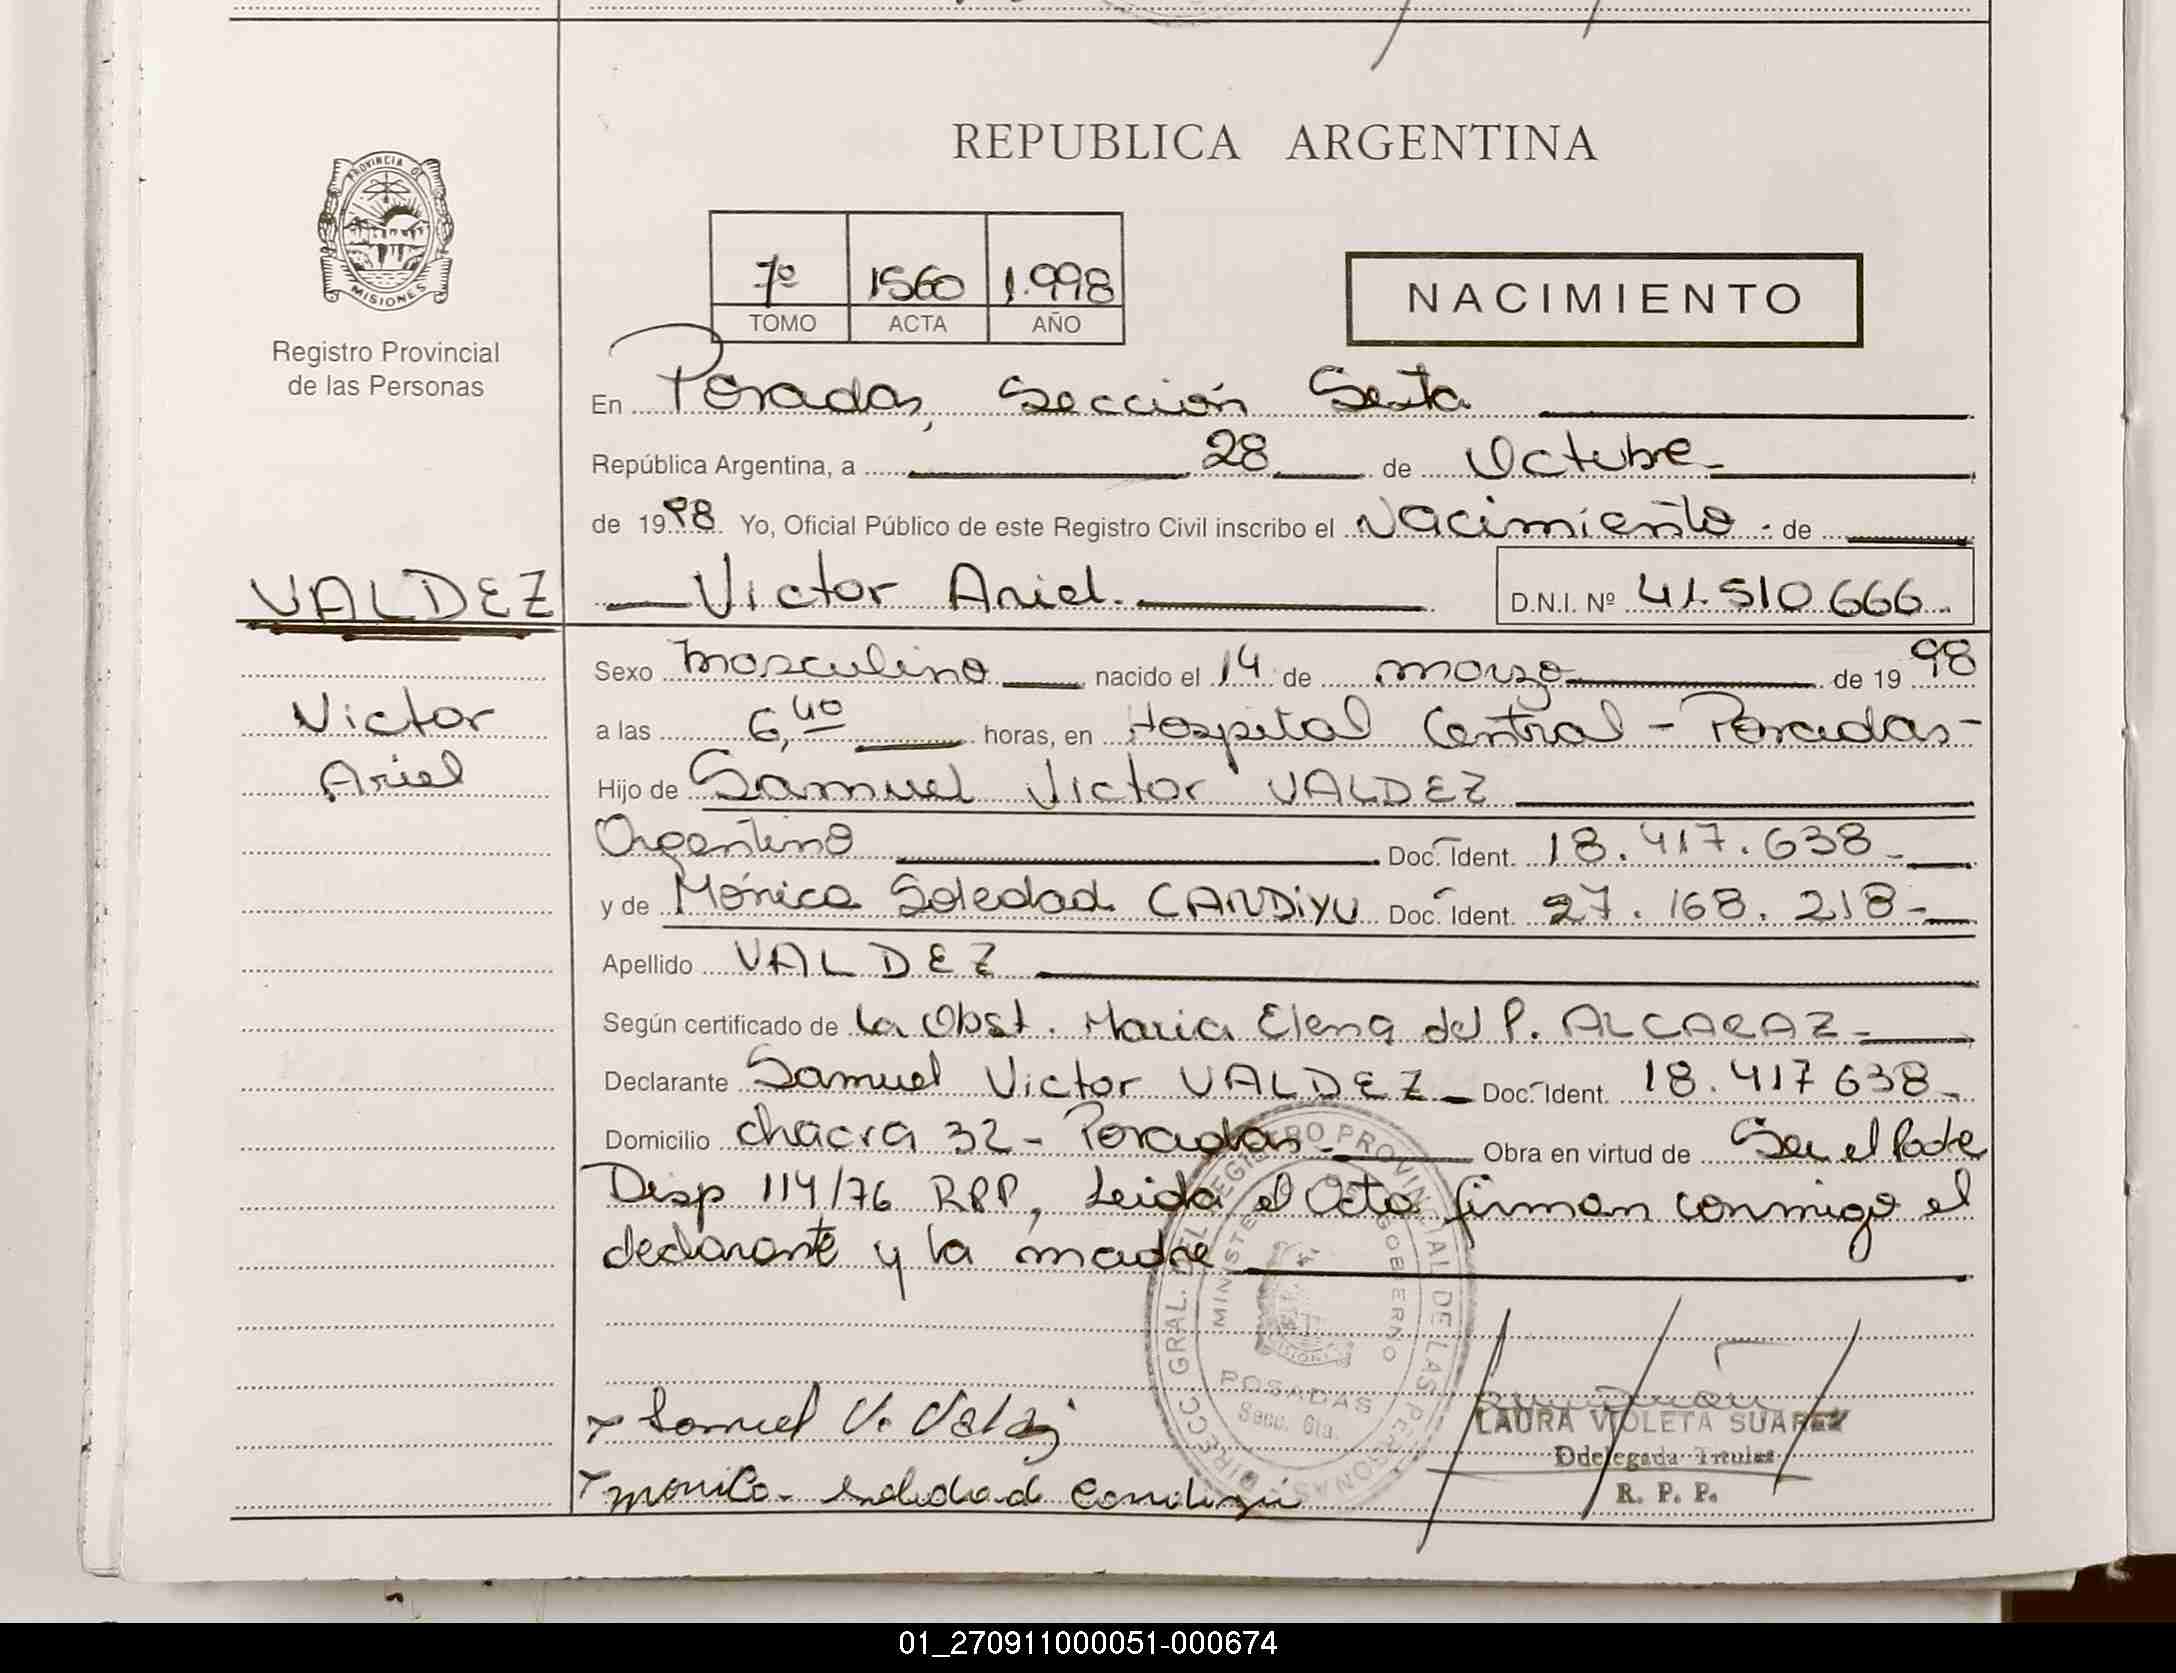 REPUBLICA ARGENTINA
PROVINCIA DE
MISIONES
Registro Provincial
de las Personas
7º 1560 1.998
TOMO ACTA AÑO
NACIMIENTO
En Posadas, Sección Sexta
República Argentina, a 28 de Octubre
de 1998 Yo, Oficial Público de este Registro Civil inscribo el Nacimiento de
VALDEZ
Victor Ariel. D.N.I. Nº 41.510.666
Sexo masculino nacido el 14 de marzo de 1998
Victor
Ariel
a las 6,40 horas, en Hospital Central - Posadas-
Hijo de Samuel Victor VALDEZ
Argentino Doc. Ident. 18.417.638
y de Mónica Soledad CANDIYU Doc. Ident. 27.168.218-
Apellido VALDEZ
Según certificado de la Obst. Maria Elena del P. ALCARAZ
Declarante Samuel Victor VALDEZ Doc. Ident. 18.417 638
Domicilio chacra 32 - Posadas Obra en virtud de Ser el Padre
Disp 114/76 RPP, Leida el Acta firman conmigo el
declarante y la madre
DIRECC. GRAL. DEL REGISTRO PROVINCIAL DE LAS PERSONAS
MINISTERIO DE GOBIERNO
MISIONES
POSADAS
Secc. 6ta.
Samuel V. Valdez
monica soledad Candiyu
LAURA VIOLETA SUAREZ
Ddelegada Titular
R. P. P.
01_270911000051-000674